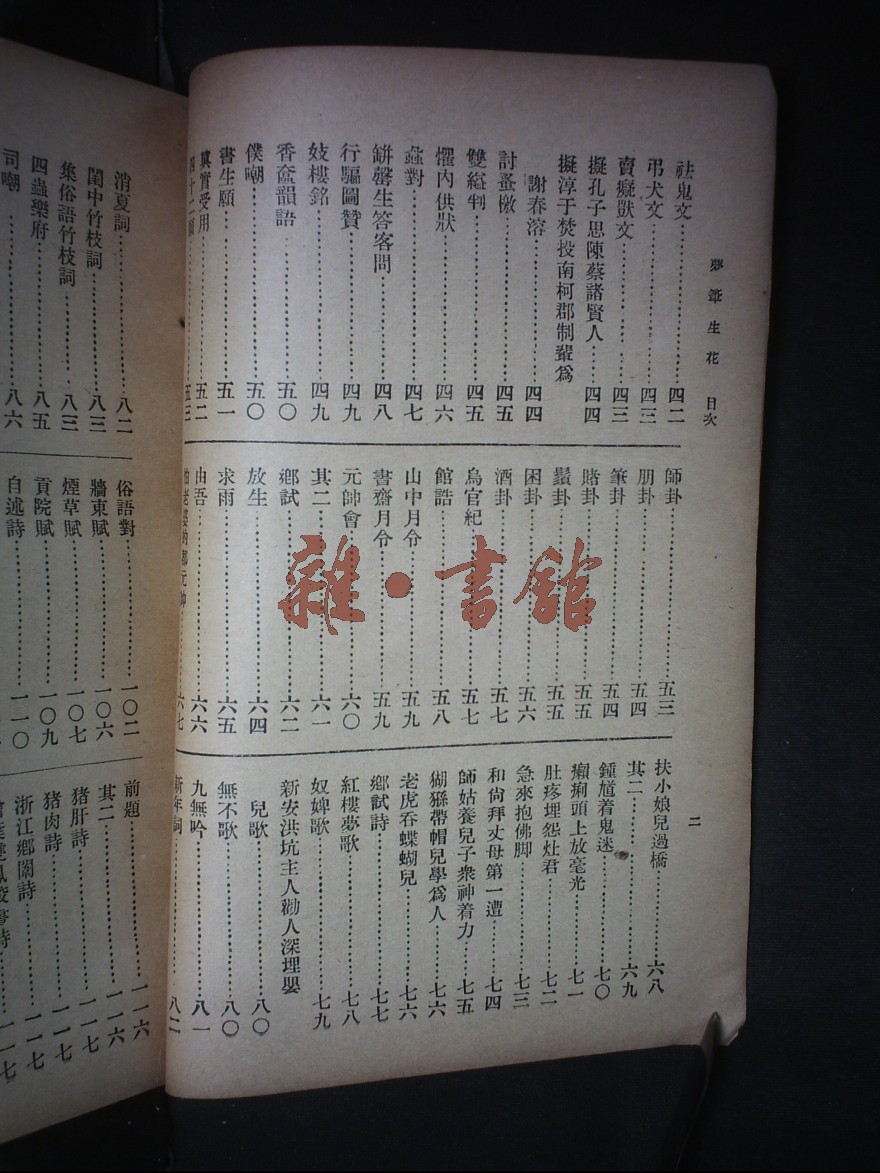 夢筆生花　目次
祛鬼文……四二
弔犬文……四三
賣癡獃文……四三
擬孔子思陳蔡諸賢人……四四
擬淳于棼投南柯郡制輩爲
謝春溶……四四
討蚤檄……四五
雙縊判……四五
懼內供狀……四六
蝨對……四七
缾罄生答客問……四八
行騙圖贊……四九
妓樓銘……四九
香奩韻語……五〇
僕嘲……五〇
書生願……五一
眞實受用……五二
五三
師卦……五三
朋卦……五四
筆卦……五四
賭卦……五五
鬚卦……五五
困卦……五六
酒卦……五七
烏官紀……五七
館誥……五八
山中月令……五九
書齋月令……五九
元帥會……六〇
其二……六一
鄉試……六二
放生……六四
求雨……六五
由吾……六六
怕老婆的都元帥……六七
二
扶小娘兒過橋……六八
其二……六九
鍾馗着鬼迷……七〇
癩痢頭上放毫光……七一
肚疼埋怨灶君……七二
急來抱佛脚……七三
和尙拜丈母第一遭……七四
師姑養兒子衆神着力……七五
猢猻帶帽兒學爲人……七六
老虎吞蝶蝴兒……七六
鄉試詩……七七
紅樓夢歌……七八
奴婢歌……七九
新安洪坑主人勸人深埋嬰
兒歌……八〇
無不歌……八〇
九無吟……八一
新年詞……八二
消夏詞……八二
閨中竹枝詞……八三
集俗語竹枝詞……八三
四蟲樂府……八五
司嘲……八六
俗語對……一〇二
牆東賦……一〇六
煙草賦……一〇七
貢院賦……一〇九
自述詩……一一〇
前題……一一六
其二……一一六
豬肝詩……一一七
豬肉詩……一一七
浙江鄉闈詩……一一七
雜・書館